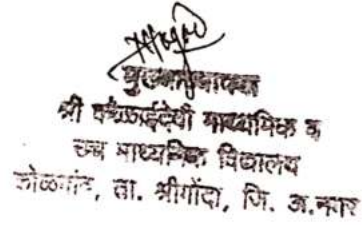 मुख्याध्यापक
श्री कोळाईदेवी माध्यमिक व
उच्च माध्यमिक विद्यालय
कोळगांव, ता. श्रीगोंदा, जि. अ.नगर